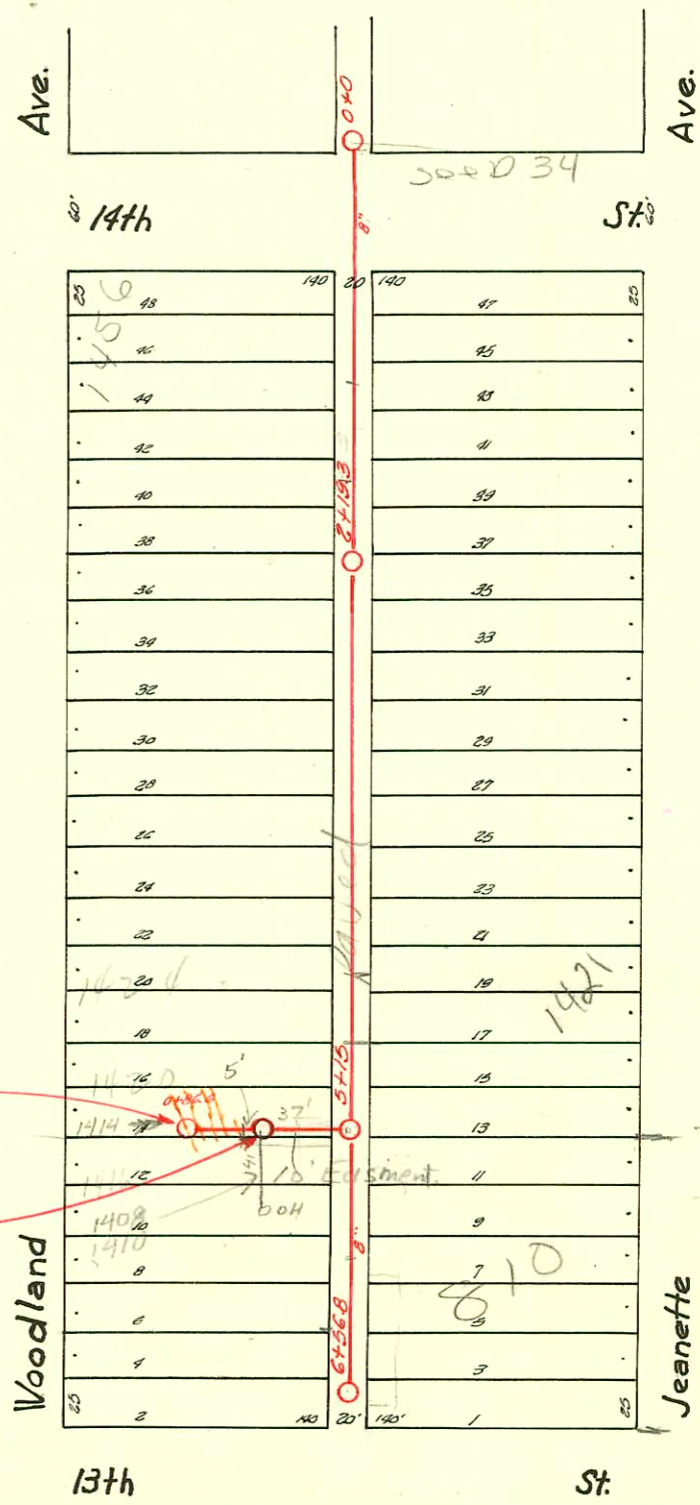 Ave.
Ave.
0+0
see D 34
60' 14th St. 60'
8"
25 140 20 140 25
1456
48 47
46 45
44 43
42 41
40 39
2+19.3
38 37
36 35
34 33
32 31
30 29
28 27
26 25
24 23
Paved
22 21
20 19
1424
1421
18 17
5+15
16 15
1420
5'
37'
1414
14 13
12 11
41'
10' Easment.
1408
1410
10 9
8"
8 7
810
6 5
6+56.8
4 3
25 2 140 20' 140' 1 25
Woodland
Jeanette
13th St.